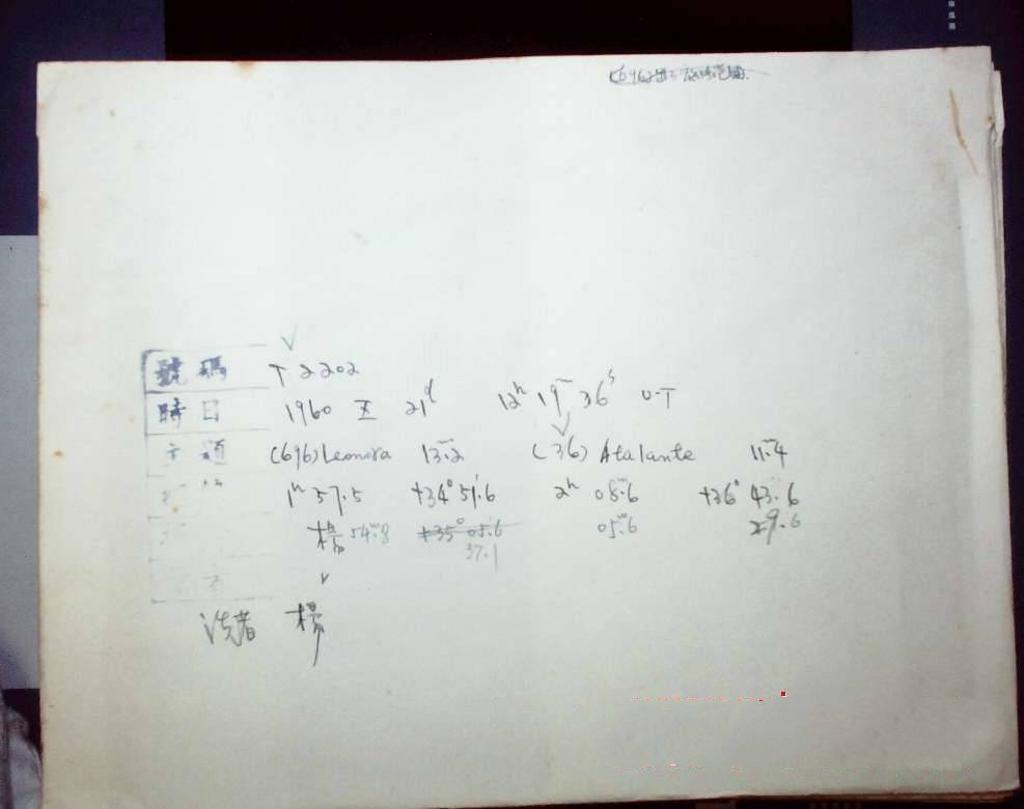 號碼 T 2202
時日 1960 X 21ᵈ 12ʰ 19ᵐ 36ˢ U.T
(696) Leonora 13ᵐ.2 (36) Atalante 11ᵐ.4
1ʰ 57.5 +34° 51'.6 2ʰ 08ᵐ.6 +36° 43'.6
楊 54ᵐ.8 +35° 05'.6 05ᵐ.6 29.6
37.1
洗者 楊